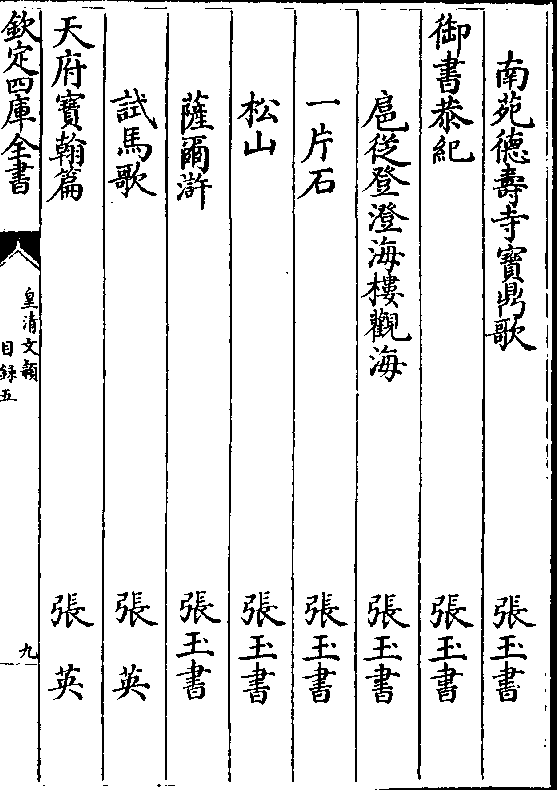 南苑德壽寺寶鼎歌　張玉書
御書恭紀　張玉書
扈從登澄海樓觀海　張玉書
一片石　張玉書
松山　張玉書
薩爾滸　張玉書
試馬歌　張英
天府寶翰篇　張英
欽定四庫全書
皇清文穎
目録五
九